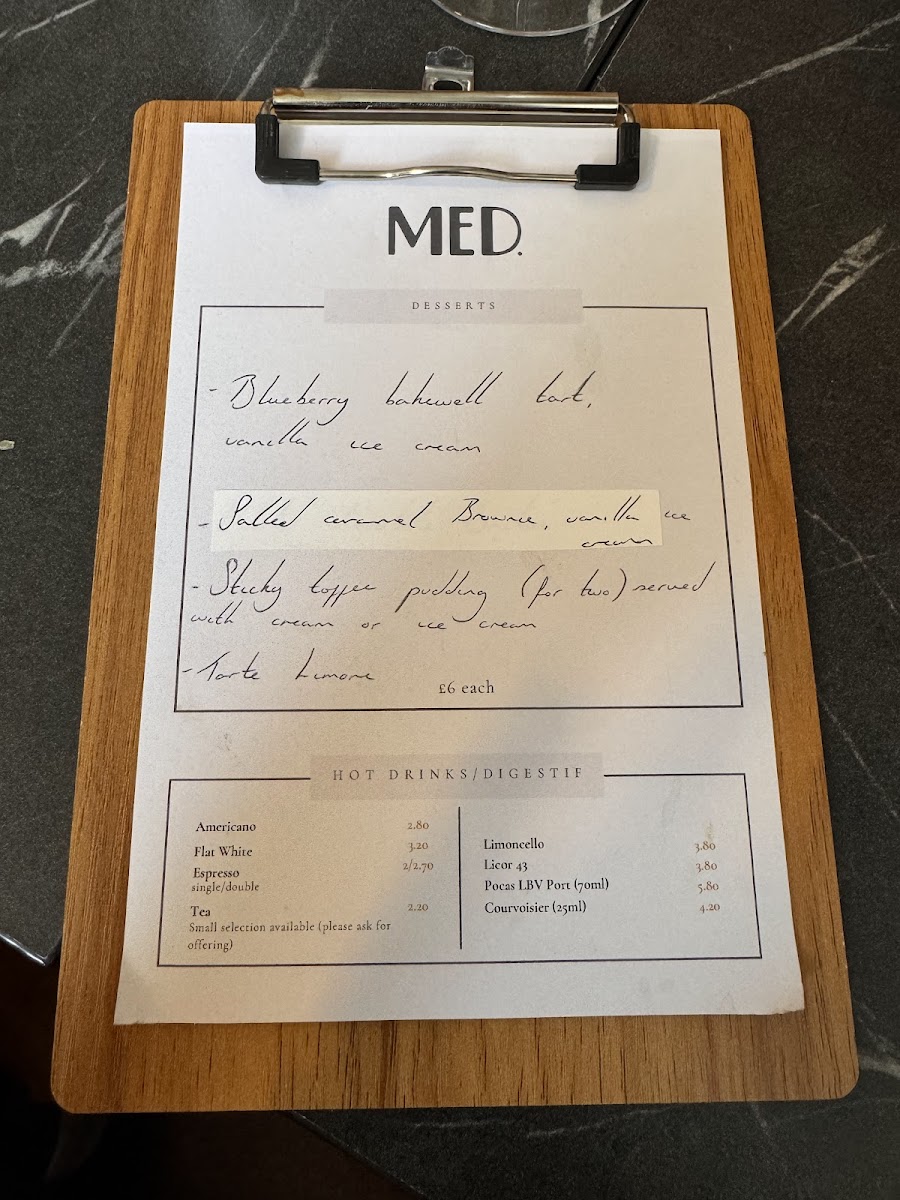 MED.
DESSERTS
- Blueberry bakewell tart,
vanilla ice cream
- Salted caramel Brownie, vanilla ice
cream
- Sticky toffee pudding (for two) served
with cream or ice cream
- Tarte Limone
£6 each
HOT DRINKS/DIGESTIF
Americano 2.80
Flat White 3.20
Espresso 2/2.70
single/double
Tea 2.20
Small selection available (please ask for
offering)
Limoncello 3.80
Licor 43 3.80
Pocas LBV Port (70ml) 5.80
Courvoisier (25ml) 4.20